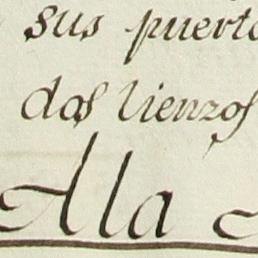 sus puerto
dos lienzos
A la